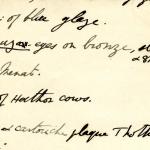 of blue glaze.
eyes on bronze,
Menat.
of Hathor cows.
& cartouche plaque Thoth